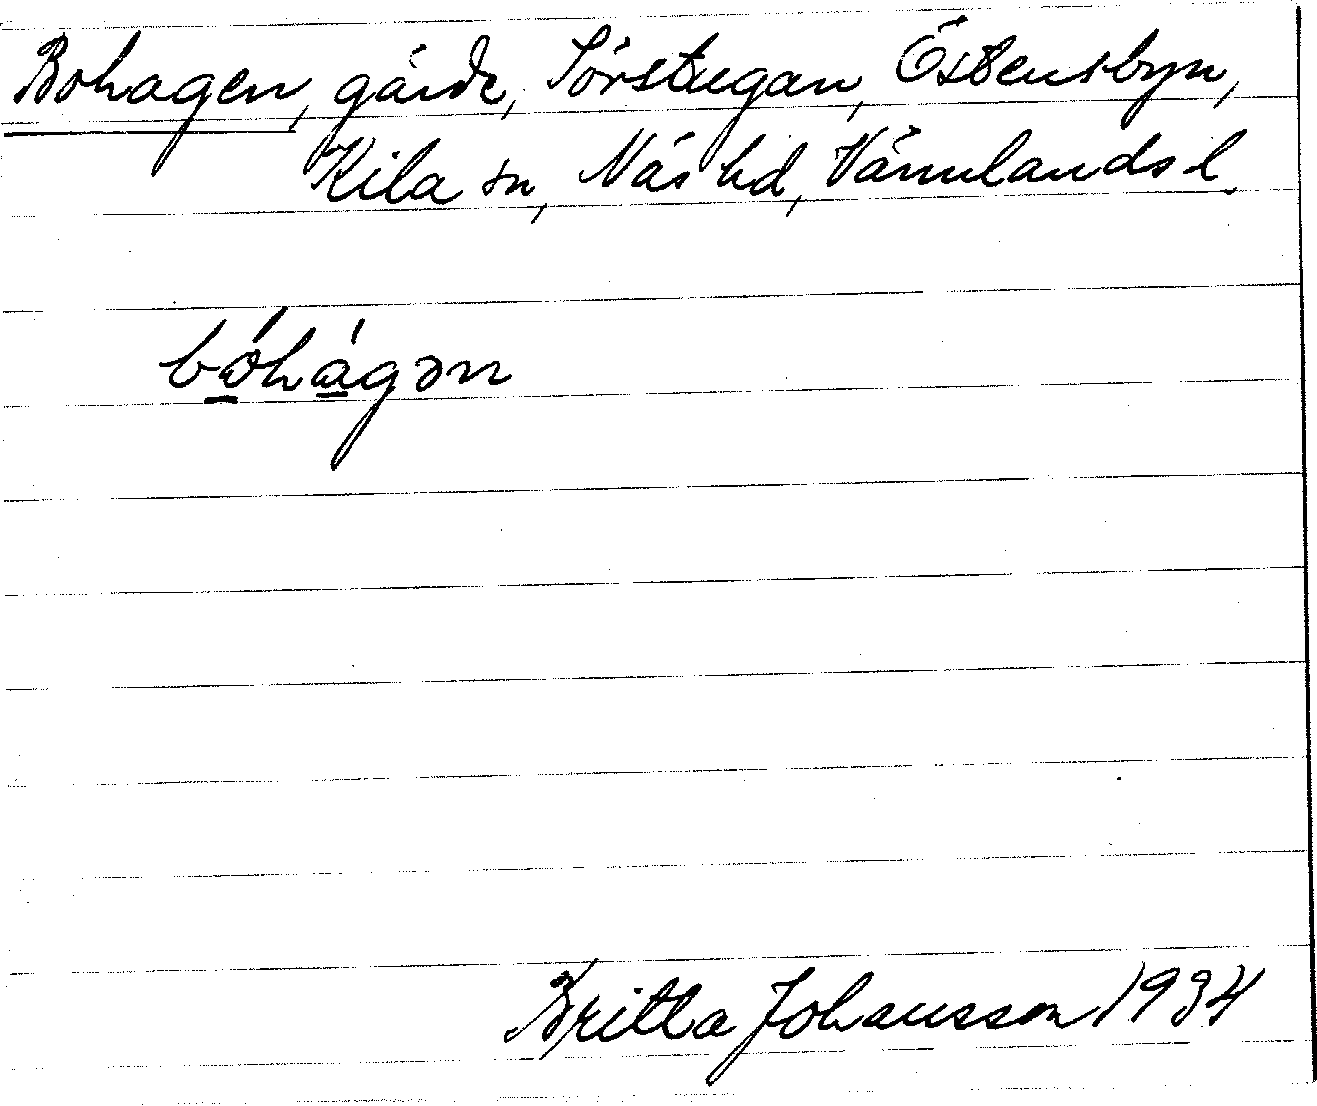 Bohagen, gärde, Sörstugan, Östensbyn,
Kila sn, Näs hd, Värmlands l.
bo̱´ha̱´gən
Britta Johansson 1934